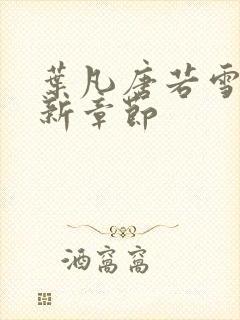 葉凡唐若雪
新章節
酒窩窩